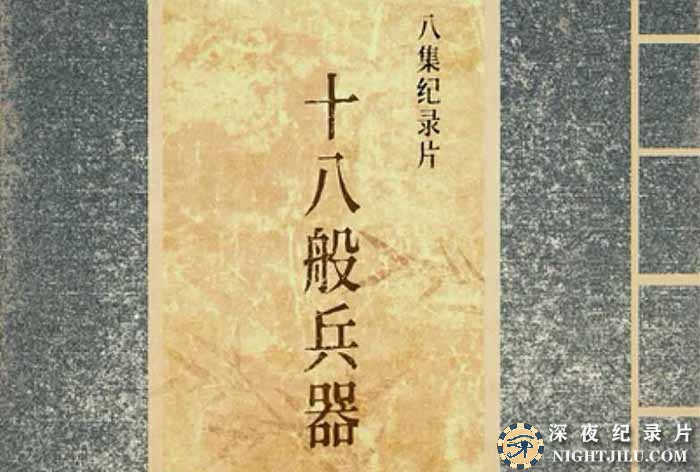 八集纪录片
十八般兵器
深夜纪录片
NIGHTJILU.COM